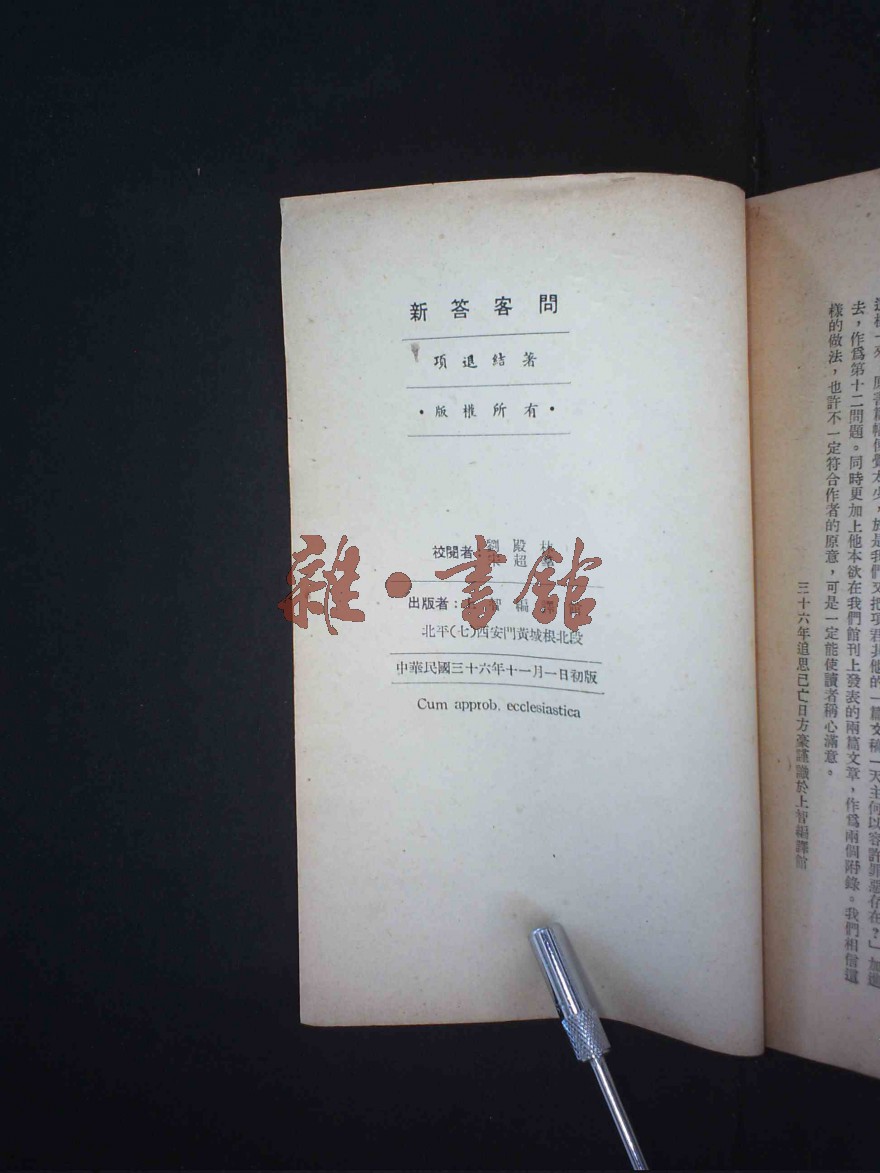 新答客問
項退結著
•版權所有•
校閱者：劉殿林
超
出版者：上智編譯館
北平(七)西安門黃城根北段
中華民國三十六年十一月一日初版
Cum approb. ecclesiastica
雜•書館
於是我們又把項君其他的一篇文稿「天主何以容許罪惡存在？」加進
去，作爲第十二問題。同時更加上他本欲在我們館刊上發表的兩篇文章，作爲兩個附錄。我們相信這
樣的做法，也許不一定符合作者的原意，可是一定能使讀者稱心滿意。
三十六年追思已亡日方豪謹識於上智編譯館